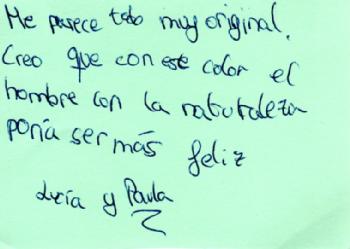 Me parece todo muy original.
Creo que con este color el
hombre con la naturaleza
poría ser más feliz
Lucía y Paula